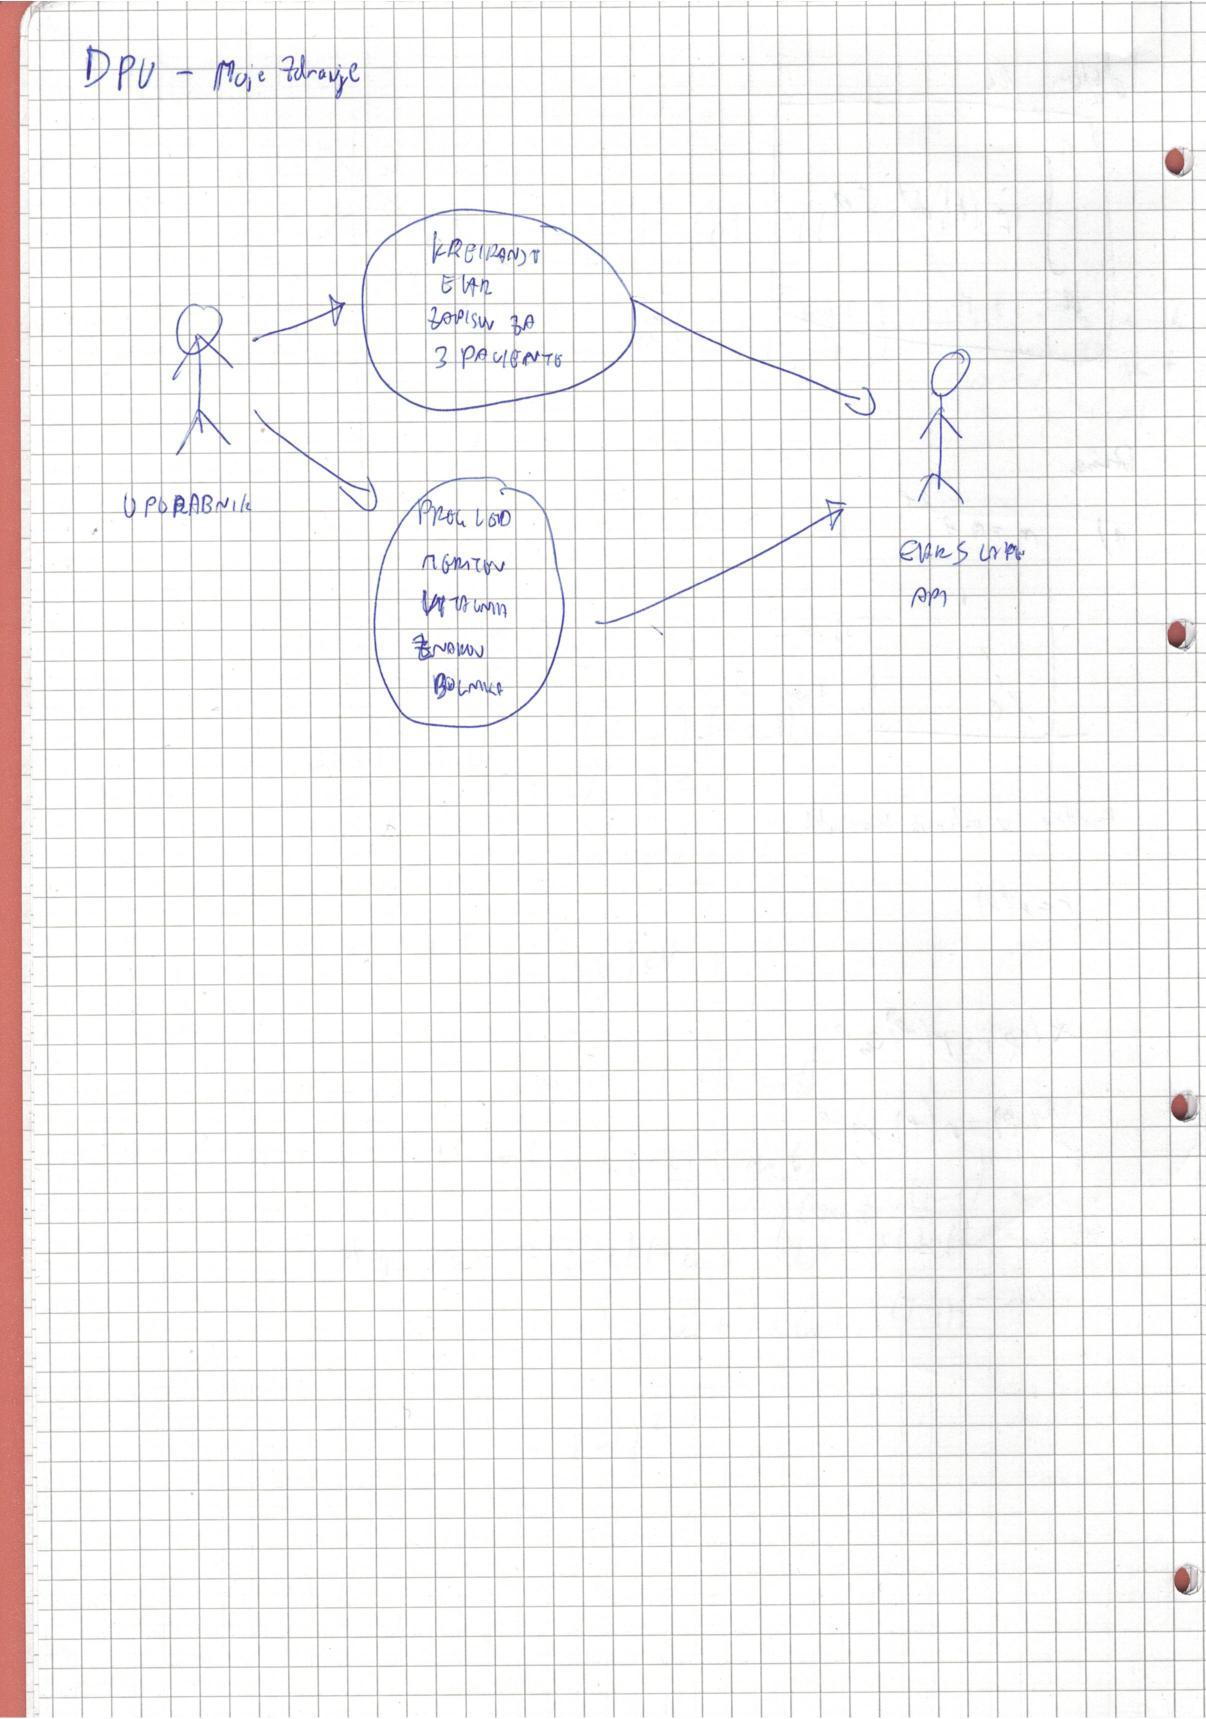 DPU - Moje Zdravje
KREIRANJE
EHR
ZAPISOV ZA
3 PACIENTE
UPORABNIK
PREGLED
MERITEV
VITALNIH
ZNAKOV
BOLNIKA
EHRSCAPE
API